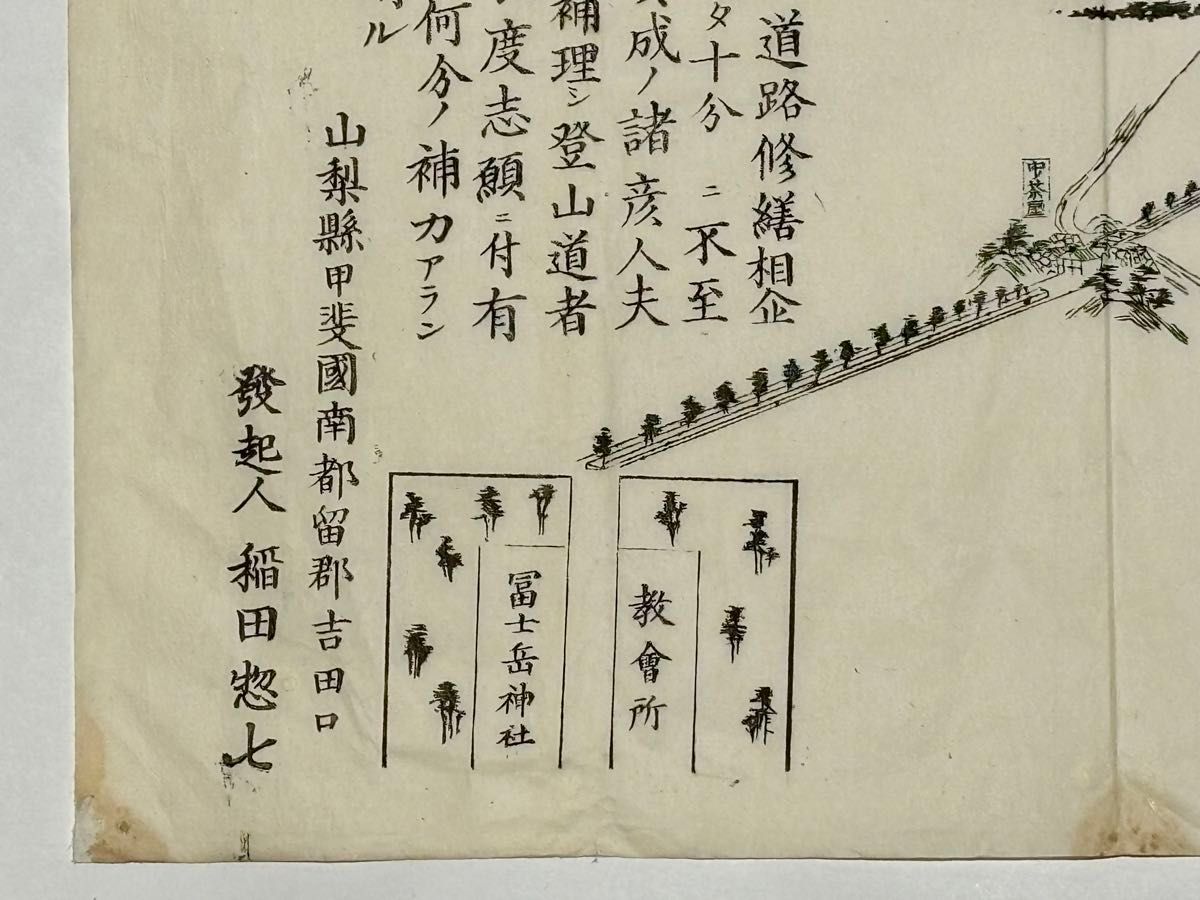 中茶屋
道路修繕相企
タ十分ニ不至
成ノ諸彦人夫
補理シ登山道者
度志願ニ付有
何分ノ補力アラン
ル
山梨縣甲斐國南都留郡吉田口
發起人 稲田惣七
教會所
冨士岳神社